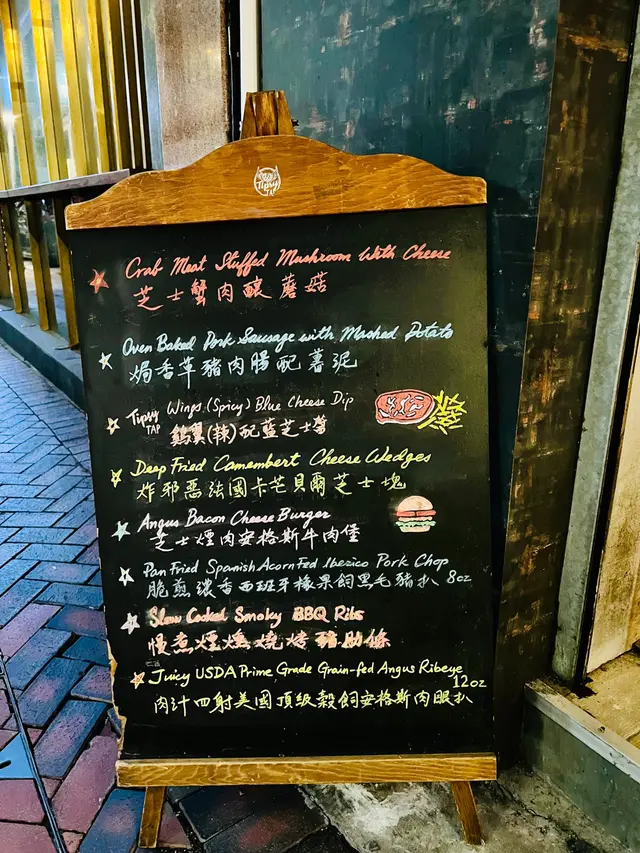 Tipsy
Crab Meat Stuffed Mushroom With Cheese
芝士蟹肉釀蘑菇
Oven Baked Pork Sausage with Mashed Potato
焗香草豬肉腸配薯泥
Tipsy TAP Wings (Spicy) Blue Cheese Dip
鷄翼(辣)配藍芝士醬
Deep Fried Camembert Cheese Wedges
炸邪惡法國卡芒貝爾芝士塊
Angus Bacon Cheese Burger
芝士煙肉安格斯牛肉堡
Pan Fried Spanish Acorn Fed Iberico Pork Chop
脆煎濃香西班牙橡果飼黑毛豬扒 8oz
Slow Cooked Smoky BBQ Ribs
慢煮煙燻燒烤豬肋條
Juicy USDA Prime Grade Grain-fed Angus Ribeye
12oz
肉汁四射美國頂級穀飼安格斯肉眼扒